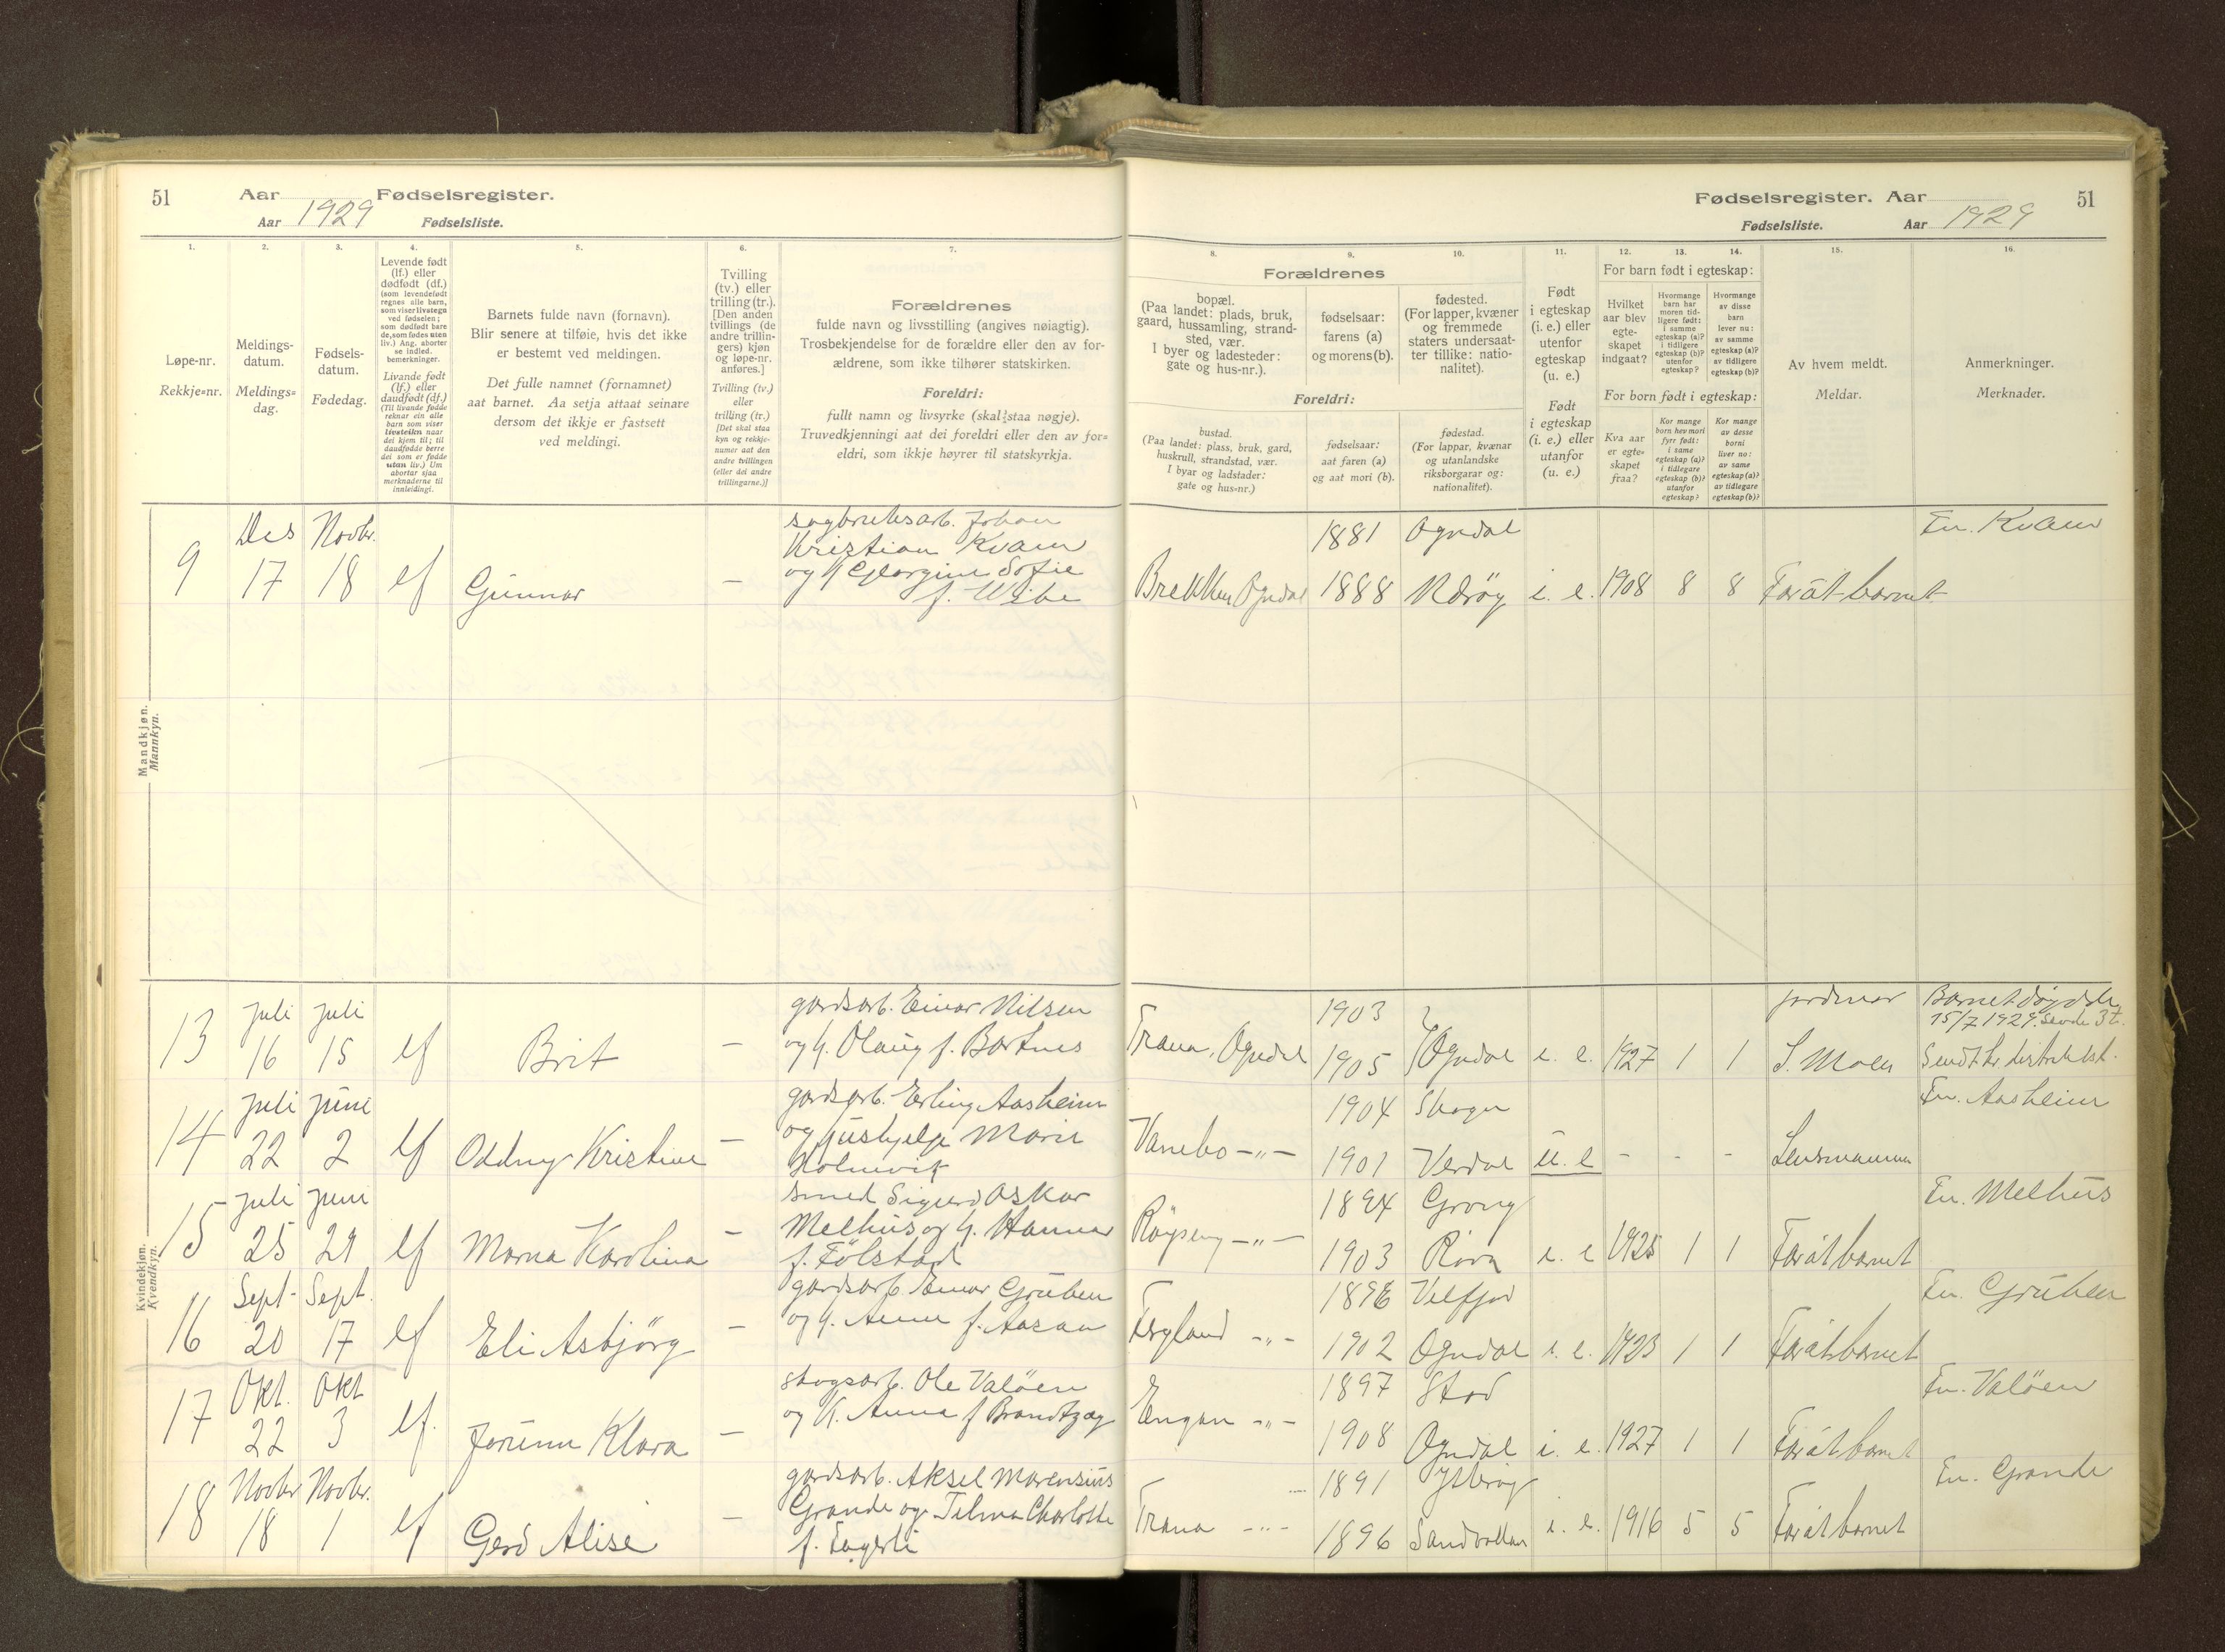 51
Aar
Fødselsregister.
Aar 1929
Fødselsliste.
1.
2.
3.
4.
5.
6.
7.
Løpe-nr.
Rekkje=nr.
Meldings-
datum.
Meldings=
dag.
Fødsels-
datum.
Fødedag.
Levende født
(lf.) eller
dødfødt (df.)
(som levendefødt
regnes alle barn,
som viser livstegn
ved fødselen;
som dødfødt bare
de, som fødes uten
liv.) Ang. aborter
se indled.
bemerkninger.
Livande født
(lf.) eller
daudfødt (df.)
(Til livande fødde
reknar ein alle
born som viser
livsteikn naar
dei kjem til; til
daudfødde berre
dei som er fødde
utan liv.) Um
abortar sjaa
merknaderne til
innleidingi.
Barnets fulde navn (fornavn).
Blir senere at tilføie, hvis det ikke
er bestemt ved meldingen.
Det fulle namnet (fornamnet)
aat barnet. Aa setja attaat seinare
dersom det ikkje er fastsett
ved meldingi.
Tvilling
(tv.) eller
trilling (tr.).
[Den anden
tvillings (de
andre trillin-
gers) kjøn
og løpe-nr.
anføres.]
Tvilling (tv.)
eller
trilling (tr.)
[Det skal staa
kyn og rekkje-
numer aat den
andre tvillingen
(eller dei andre
trillingarne.)]
Forældrenes
fulde navn og livsstilling (angives nøiagtig).
Trosbekjendelse for de forældre eller den av for-
ældrene, som ikke tilhører statskirken.
Foreldri:
fullt namn og livsyrke (skal staa nøgje).
Truvedkjenningi aat dei foreldri eller den av for=
eldri, som ikkje høyrer til statskyrkja.
Mandkjøn.
Mannkyn.
9
Des
17
Novbr.
18
lf
Gunnar
–
sagbruksarb. Johan
Kristian Kvam
og h. Georgine Sofie
f. Wibe
Kvindekjøn.
Kvendkyn.
13
Juli
16
Juli
15
lf
Brit
–
gardsarb. Einar Nilsen
og h. Olaug f. Bartnes
14
Juli
22
Juni
2
lf
Oddny Kristine
–
gardsarb. Erling Aasheim
og hushjelp Marie
Holmvik
15
Juli
25
Juni
29
lf
Marna Karolina
–
smed Sigurd Oskar
Melhus og h. Hanna
f. Følstad
16
Sept.
20
Sept.
17
lf
Eli Asbjörg
–
gardsarb. Einar Gruben
og h. Anna f. Aasan
17
Okt.
22
Okt
3
lf.
Jorunn Klara
–
skogsarb. Ole Valöen
og h. Anna f Brandtzæg
18
Novbr
18
Novbr.
1
lf
Gerd Alise
–
gardsarb. Aksel Marensius
Grande og Tilma Charlotte
f. Fagerli
Fødselsregister. Aar
51
Fødselsliste.
Aar 1929
8.
9.
10.
11.
12.
13.
14.
15.
16.
Forældrenes
bopæl.
(Paa landet: plads, bruk,
gaard, hussamling, strand-
sted, vær.
I byer og ladesteder:
gate og hus-nr.).
fødselsaar:
farens (a)
og morens (b).
fødested.
(For lapper, kvæner
og fremmede
staters undersaat-
ter tillike: natio-
nalitet).
Foreldri:
bustad.
(Paa landet: plass, bruk, gard,
huskrull, strandstad, vær.
I byar og ladstader:
gate og hus=nr.)
fødselsaar:
aat faren (a)
og aat mori (b).
fødestad.
(For lappar, kvænar
og utanlandske
riksborgarar og:
nationalitet).
Født
i egteskap
(i. e.) eller
utenfor
egteskap
(u. e.)
Født
i egteskap
(i. e.) eller
utanfor
(u. e.)
For barn født i egteskap:
Hvilket
aar blev
egte-
skapet
indgaat?
Hvormange
barn har
moren tid-
ligere født:
i samme
egteskap (a)?
i tidligere
egteskap (b)?
utenfor
egteskap?
Hvormange
av disse
barn
lever nu:
av samme
egteskap (a)?
av tidligere
egteskap (b)?
For born født i egteskap:
Kva aar
er egte=
skapet
fraa?
Kor mange
born hev mori
fyrr født:
i same
egteskap (a)?
i tidlegare
egteskap (b)?
utanfor
egteskap?
Kor mange
av desse
borni
liver no:
av same
egteskap (a)?
av tidlegare
egteskap (b)?
Av hvem meldt.
Meldar.
Anmerkninger.
Merknader.
Brekken Ogndal
1881
1888
Ogndal
Ytterøy
i. e.
1908
8
8
Far åt barnet
En. Kvam
Trana, Ogndal
1903
1905
Ogndal
i. e.
1927
1
1
jordmor
S. Moen
Barnet døydde
15/7 1929. levde 3 t.
Sendt hr. distriktsl.
Vanebo –„–
1904
1901
Skogn
Verdal
u. e
-
-
-
Lensmannen
En. Aasheim
Røyseng –„–
1894
1903
Grong
i. e
1925
1
1
Far åt barnet
En. Melhus
–„–
1896
1902
Velfjord
Ogndal
i. e.
1923
1
1
Far åt barnet
En. Gruben
Engan –„–
1897
1908
Stod
Ogndal
i. e.
1927
1
1
Far åt barnet
En. Valöen
Trana –„–
1891
1896
Ytterøy
Sandvollan
i. e.
1916
5
5
Far åt barnet
En. Grande